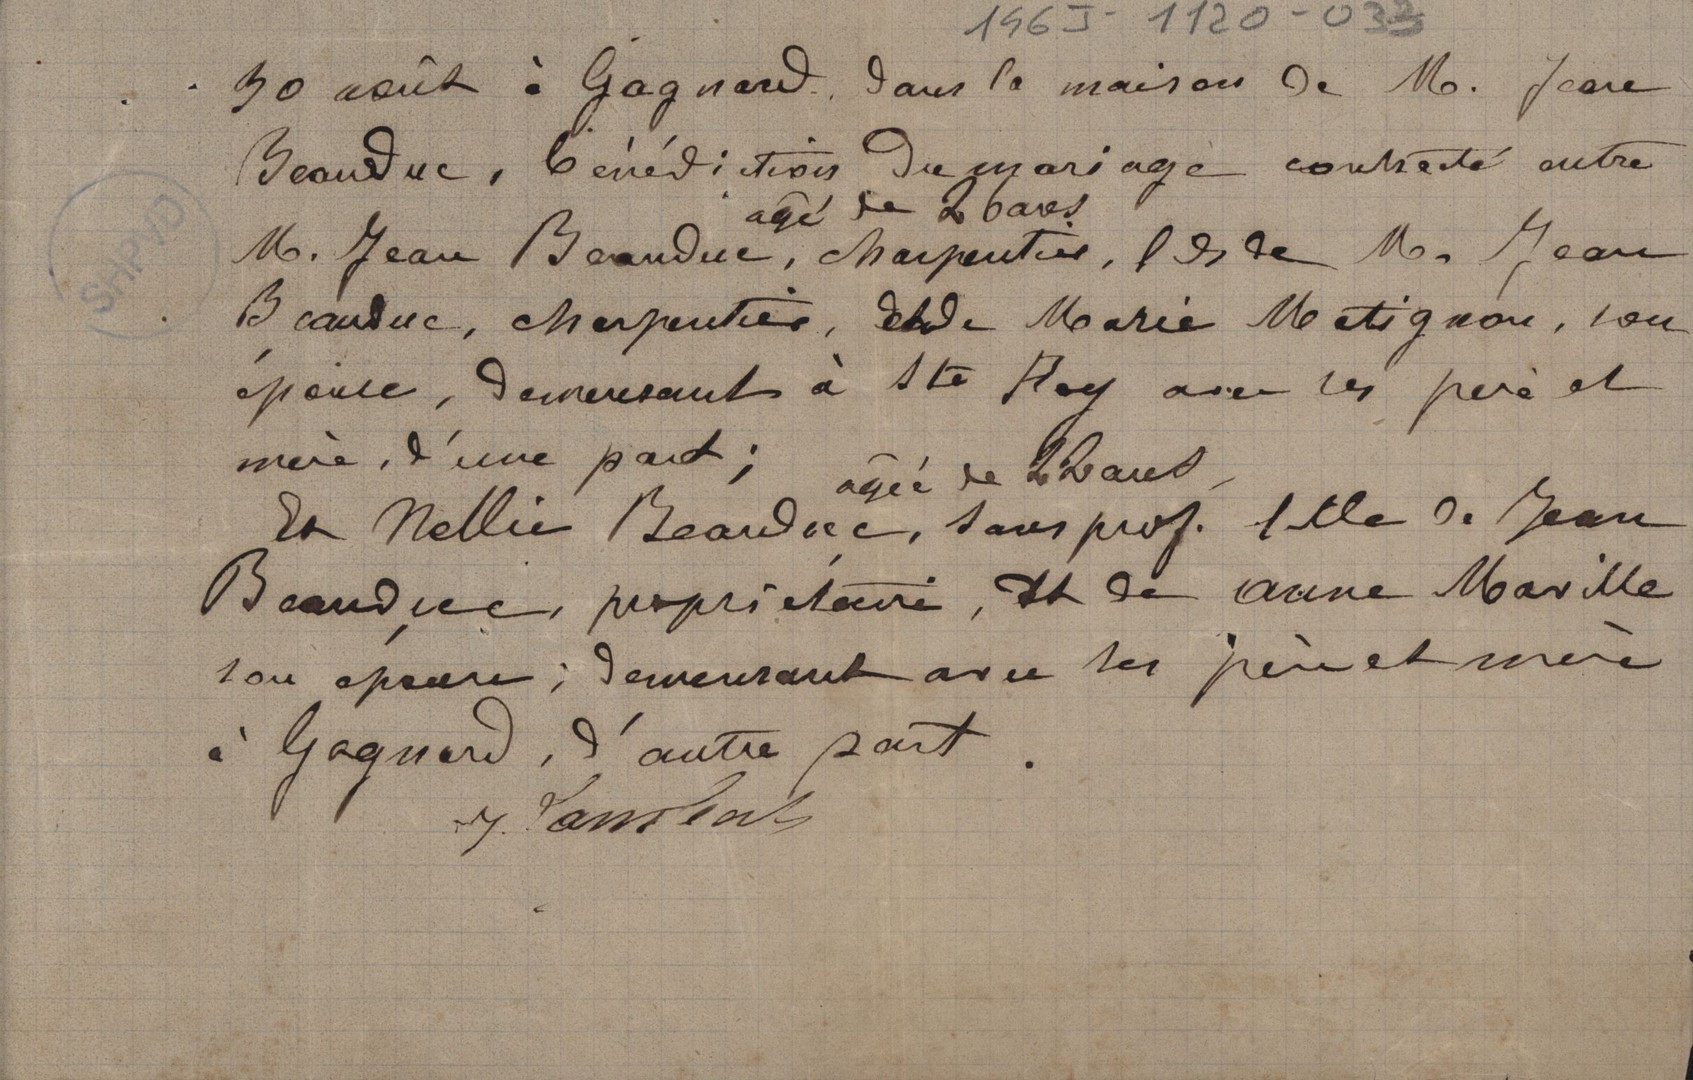 196J - 1120 - 033
30 août à Gagnard. dans la maison de M. Jean
Beauduc, bénédiction du mariage contracté entre
agé de 26 ans
M. Jean Beauduc, charpentier, fils de M. Jean
Beauduc, charpentier, et de Marie Matignon, son
épouse, demeurant à Ste Foy avec ses père et
mère, d'une part;
agée de 22 ans
Et Nellie Beauduc, sans prof. fille de Jean
Beauduc, propriétaire, et de anne Maville
son épouse; demeurant avec ses père et mère
à Gagnard, d'autre part.
SHPVD